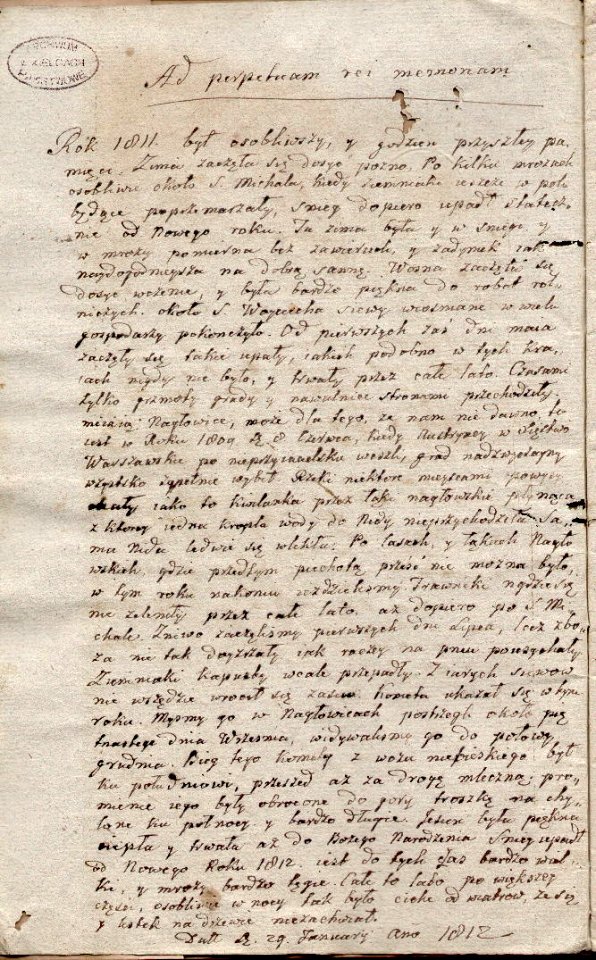 ARCHIWUM
W KIELCACH
PAŃSTWOWE
Ad perpetuam rei memoriam
Rok 1811. był osobliwszy, y godzien przyszłey pa-
mięci. Zima zaczęła się dosyć pozno. Po kilku mrozach
osobliwie około S. Michała, kiedy ziemniaki ieszcze w polu
będące poprzemarzały, śnieg dopiero upadł statecz-
nie od Nowego roku. Ta zima była y w śniegi y
w mrozy pomierna bez zawieruch, y zadymek iak
naydogodnieysza na dobrą sannę. Wiosna zaczęła się
dosyć wcześnie, y była bardzo piękna do robot rol-
niczych. około S. Woyciecha siewy wiosniane w wielu
gospodarzy pokończyło. Od pierwszych zaś dni maia
zaczęły się takie upały, iakich podobno w tych kra-
iach nigdy nie było, y trwały przez całe lato. Czasami
tylko grzmoty grady y nawałnice stronami przechodziły
miiaiąc Nagłowice, może dla tego, że nam nie dawno, to
iest w Roku 1809 d. 8 Czerwca, kiedy Austryacy w Xięstwo
Warszawskie po nieprzyiacielsku weszli, grad nadzwyczayny
wszystko zupełnie wybił. Rzeki niektore mieyscami powysy-
chały iako to Kwilanka przez łąki nagłowskie płynąca
z ktorey iedna kropla wody do Nidy nieprzychodziła. Sa-
ma Nida ledwie się wlekła. Po lasach, y łąkach Nagło-
wskich, gdzie przedtym piechotą przeiść nie można było,
w tym roku na koniu ieździliśmy. Trawniki nigdzie się
nie zieleniły przez całe lato. aż dopiero po S. Mi-
chale. Żniwo zaczęliśmy pierwszych dni Lipca, lecz zbo-
ża nie tak doyrzały iak raczey na pniu pousychały
Ziemniaki kapusty wcale przepadły. Z iarych siewow
nie wszędzie wrocił się zasiew. Kometa ukazał się w tym
roku. Myśmy go w Nagłowicach postrzegli około pię-
tnastego dnia Września, widywaliśmy go do połowy
grudnia. Bieg tego komety z wozu niebieskiego był
ku południowi, przeszed aż za drogę mleczną, pro-
mienie iego były obrocone do gory troszkę na chy-
lone ku pułnocy y bardzo długie. Jesień była piękna
ciepła y trwała aż do Bożego Narodzenia. Śnieg upadł
od Nowego Roku 1812. iest do tych czas bardzo wiel-
ki, y mrozy bardzo tęgie. Całe to lato po większey
części, osobliwie w nocy tak było ciche od wiatrow, że się
y listek na drzewie niezachwiał.
Datt d. 29. January Ano 1812